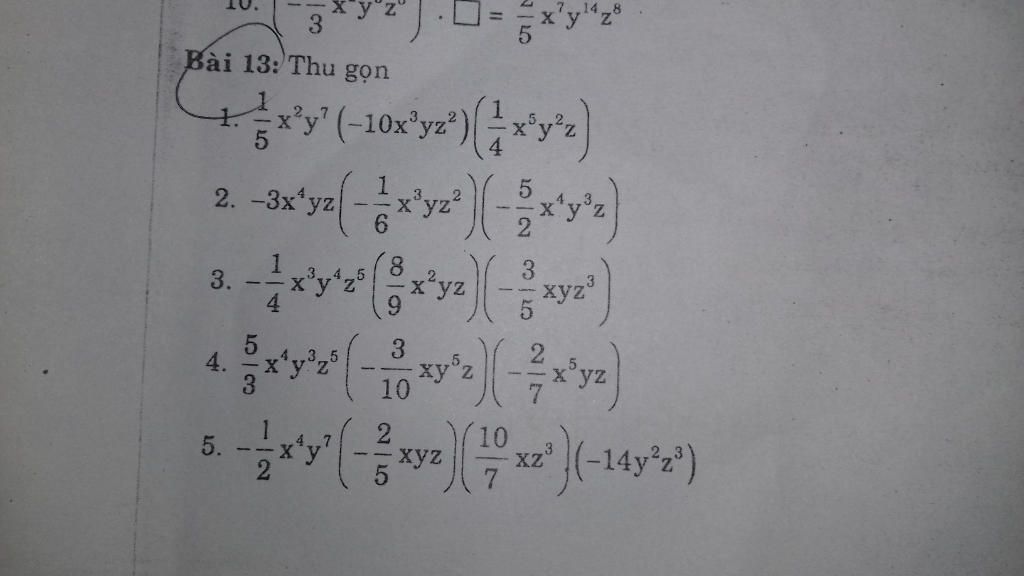 10. (-—/3 x y z ) . □ = 2/5 x⁷y¹⁴z⁸
Bài 13: Thu gọn
1. 1/5 x²y⁷ (−10x³yz²)(1/4 x⁵y²z)
2. −3x⁴yz(−1/6 x³yz²)(−5/2 x⁴y³z)
3. −1/4 x³y⁴z⁵ (8/9 x²yz)(−3/5 xyz³)
4. 5/3 x⁴y³z⁵ (−3/10 xy⁵z)(−2/7 x⁵yz)
5. −1/2 x⁴y⁷ (−2/5 xyz)(10/7 xz³)(−14y²z³)